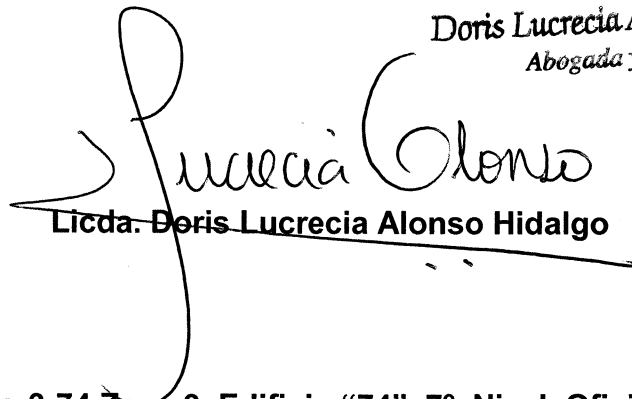 Doris Lucrecia
Abogada y
Lucrecia Alonso
Licda. Doris Lucrecia Alonso Hidalgo
Edificio “74” 7º Nivel